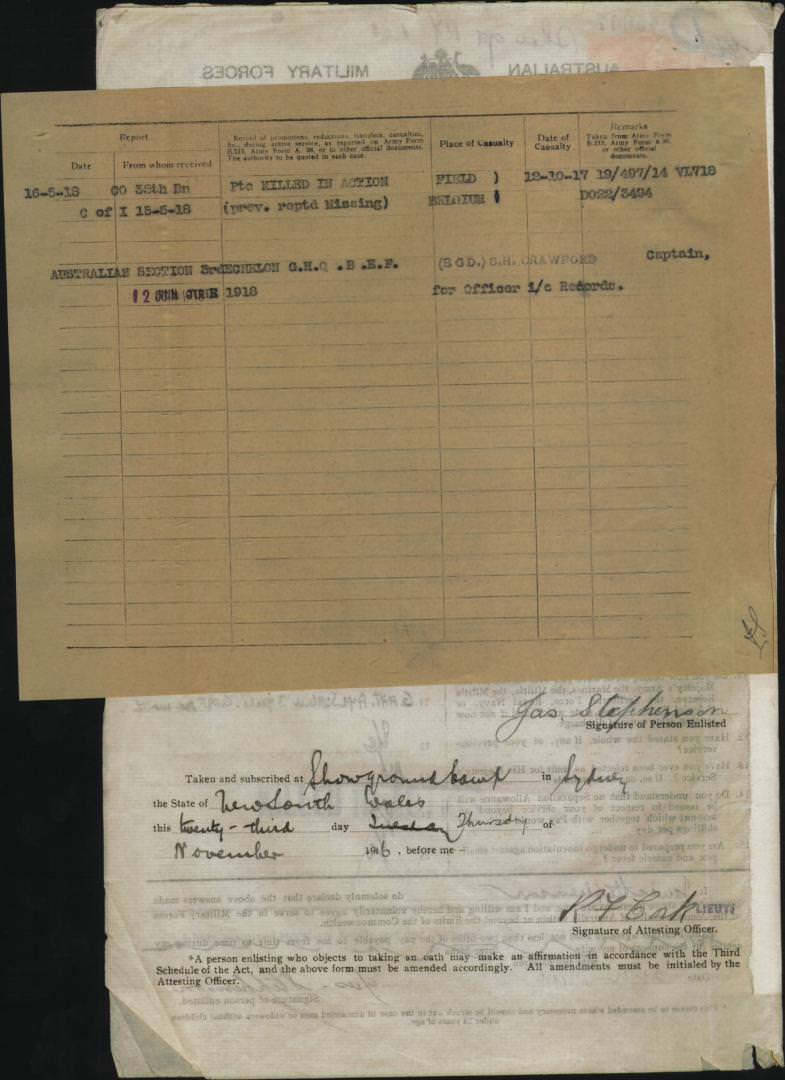 AUSTRALIAN MILITARY FORCES
Report
Record of promotions, reductions, transfers, casualties,
&c., during active service, as reported on Army Form
B.213, Army Form A. 36, or in other official documents.
The authority to be quoted in each case.
Place of Casualty
Date of
Casualty
Remarks
Taken from Army Form
B.213, Army Form A.36,
or other official
documents.
Date
From whom received
16-5-18 CO 38th Bn Pte KILLED IN ACTION FIELD ) 12-10-17 19/497/14 VL718
C of I 15-5-18 (prev. reptd Missing) BELGIUM DO22/3494
AUSTRALIAN SECTION 3rd ECHELON G.H.Q .B .E.F. (SGD.) S.H. CRAWFORD Captain,
12 JUNE 1918 for Officer i/c Records.
Jas Stephenson
Signature of Person Enlisted
Taken and subscribed at Showground Camp in Sydney
the State of New South Wales
this twenty-third day Tuesday Thursday of
November 1916, before me -
LIEUT
Signature of Attesting Officer.
*A person enlisting who objects to taking an oath may make an affirmation in accordance with the Third
Schedule of the Act, and the above form must be amended accordingly. All amendments must be initialed by the
Attesting Officer.